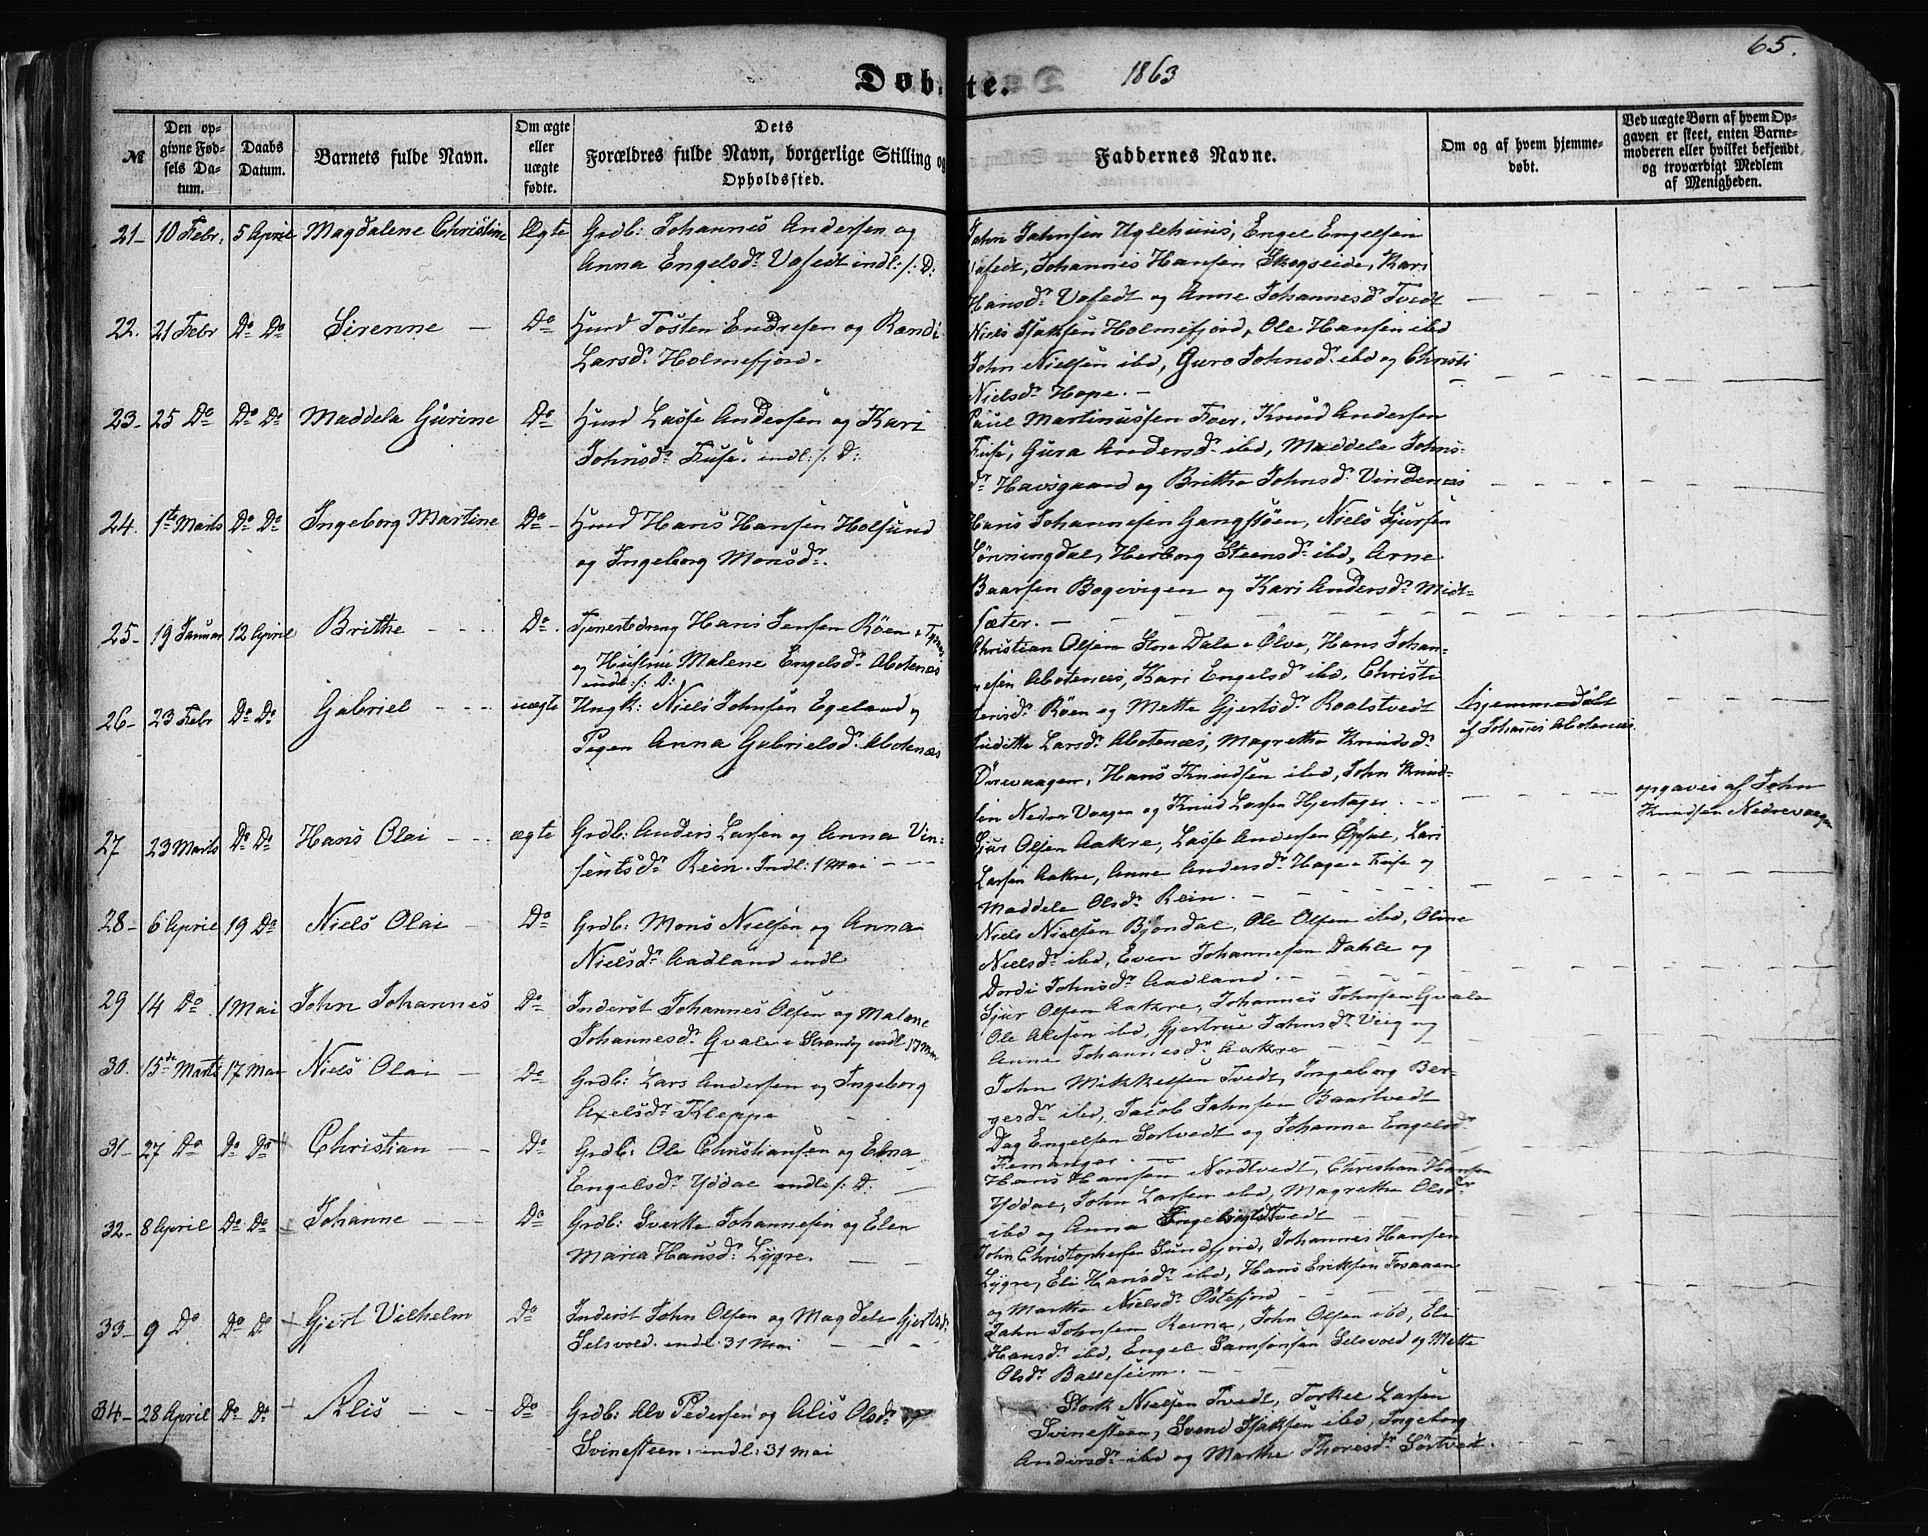 65.
Døbte. 1863
№
Den opgivne Fødsels Datum.
Daabs Datum.
Barnets fulde Navn.
Om ægte eller uægte fødte.
Dets Forældres fulde Navn, borgerlige Stilling og Opholdssted.
Faddernes Navne.
Om og af hvem hjemmedøbt.
Ved uægte Børn af hvem Opgaven er skeet, enten Barnemoderen eller hvilket bekjendt og troværdigt Medlem af Menigheden.
21- 10 Febr. 5 April Magdalene Christine Ægte Grdb: Johannes Andersen og
Anna Engelsdr. Vefedt indl: /: D:
John Johnsen Uglehuus, Engel Engelsen
Vefedt, Johannis Hansen Skogseide, Kari
Hansdr. Vefedt og Anne Johannesdr. Tvedt
22. 21 Febr Do Do Sirenne - Do Huusd Tosten Endresen og Randi
Larsdr. Holmefjord.
Niels Isaksen Holmefjord, Ole Hansen ibd
John Nielsen ibd, Guro Johnsdr. ibd og Christi
Nielsdr. Hope. -
23- 25 Do Do Do Maddela Gurine Do Huusd Lasse Andersen og Kari
Johnsdr. Fuse. indl: /: D:
Paul Martinussen Foer, Knud Andersen
Fuse, Gura Andersdr. ibd, Maddela Johns-
dr. Havsgaard og Brithe Johnsdr. Vindenes
24. 1ste Marts Do Do Ingeborg Martine Do - Huusd Hans Hansen Holsund
og Ingeborg Monsdr.
Hans Johannesen Gangstøen, Niels Sjursen
Lønningdal, Herborg Steensdr. ibd, Arne
Baarsen Bogevigen og Kari Andersdr. Midt-
sæter. -
25- 19 Januar 12 April Brithe - - - Do. Tjenestedreng Hans Jensen Røen i Tysnæs
og Hustrue Malene Engelsdr. Abotenæs
indl: /: D:
Christian Olsen Store Dale i Ølve, Hans Johan-
nesen Abotenæs, Kari Engelsdr. ibd, Christi
Jensdr. Røen og Mette Gjertsdr. Roalstvedt
26- 23 Febr Do Do Gabriel - - - uægte Ungk: Niels Johnsen Egeland og
Pigen Anna Gabrielsdr. Abotenæs
Juditte Larsdr. Abotenæs, Magrethe Knudsdr.
Ørevaagen, Hans Knudsen ibd, John Knud-
sen Nedre Vaagen og Knud Larsen Hjertager. - - -
hjemmedøbt
af Johannes Abotenæs.
opgaves af John
Knudsen Nedrevaagen
27 23 Marts Do Do Hans Olai - - ægte Grdb: Anders Larsen og Anna Vin-
sentsdr. Rein. Indl: 1 Mai - - -
Sjur Olsen Aakre, Lasse Andersen Opsal, Lars
Larsen Aakre, Anne Andersdr. Hage i Fuse og
Maddele Olsdr. Rein. -
28- 6 April 19 Do Niels Olai - Do Grdb: Mons Nielsen og Anna
Nielsdr. Aadland indl
Niels Nielsen Bjøndal, Ole Olsen ibd, Oline
Nielsdr. ibd, Even Johannesen Dahle og
Dordi Johnsdr. Aadland. -
29 14 Do 1 Mai John Johannes Do. Inderst Johannes Olsen og Malene
Johannesdr. Gvale i Strandv. indl 17 Mai
Sjur Olsen Aakre, Johannes Johnsen Gvale
Ole Alvsen ibd, Gjertrue Johnsdr. Viig og
Anne Johannesdr. Aakre - - -
30. 15de Marts 17 Mai Niels Olai - Do Grdb: Lars Andersen og Ingeborg
Axelsdr. Kleppe -
John Mikkelsen Tvedt, Ingeborg Ber-
gesdr. ibd, Jacob Johnsen Baartvedt
Dag Engelsen Sortvedt og Johanna Engelsdr.
Femanger. -
31- 27 Do Do Do Christian - - Do Grdb: Ole Christiansen og Elna
Engelsdr. Yddal indl /: D. -
Hans Hansen Nordtvedt, Christian Hansen
Yddal, John Larsen ibd, Magrethe Olsdr.
ibd og Anna
32- 8 April Do Do Johanne - - - Do Grdb: Sverke Johannesen og Elen
Maria Hansdr. Lygre. - -
John Christophersen Sundfjord, Johannes Hansen
Lygre, Eli Hansdr. ibd, Hans Eriksen
og Marthe Nielsdr. Østefjord
33- 9 Do Do Do Gjert Vilhelm Do Inderst John Olsen og Magdele Gjertsdr.
Selsvold. indl. 31 Mai - - -
John Johnsen Revne, John Olsen ibd, Eli
Hansdr. ibd, Engel Samsonsen Selsvold og Mette
Olsdr. Balleseim. -
34- 28 April Do Do Alis - - - Do Grdb: Alv Pedersen og Alis Olsdr.
Svinesteen: indl: 31 Mai
Stork Nielsen Tvedt, Torkel Larsen
Svinesteen, Svend Isaksen ibd, Ingeborg
Andersdr. ibd og Marthe Thoresdr. Sørtvedt.